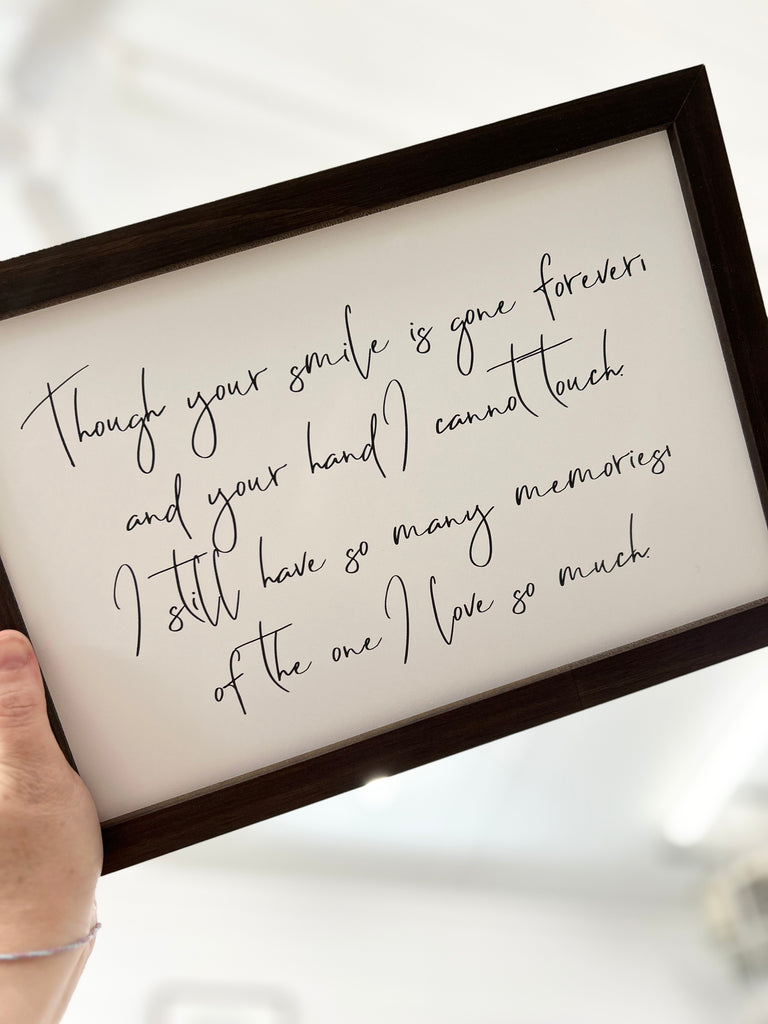 Though your smile is gone forever,
and your hand I cannot touch.
I still have so many memories,
of the one I love so much.